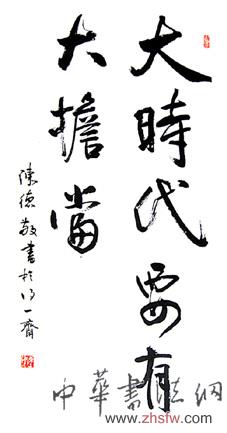 大時代要有
大擔當
陳德敬書於得一齋
中華書法網
www.zhsfw.com